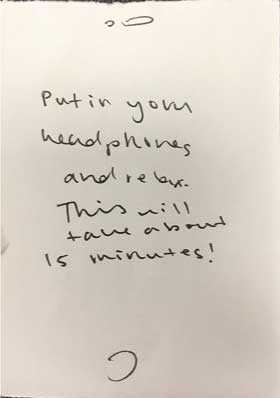 Put in your
headphones
and relax.
This will
take about
15 minutes!